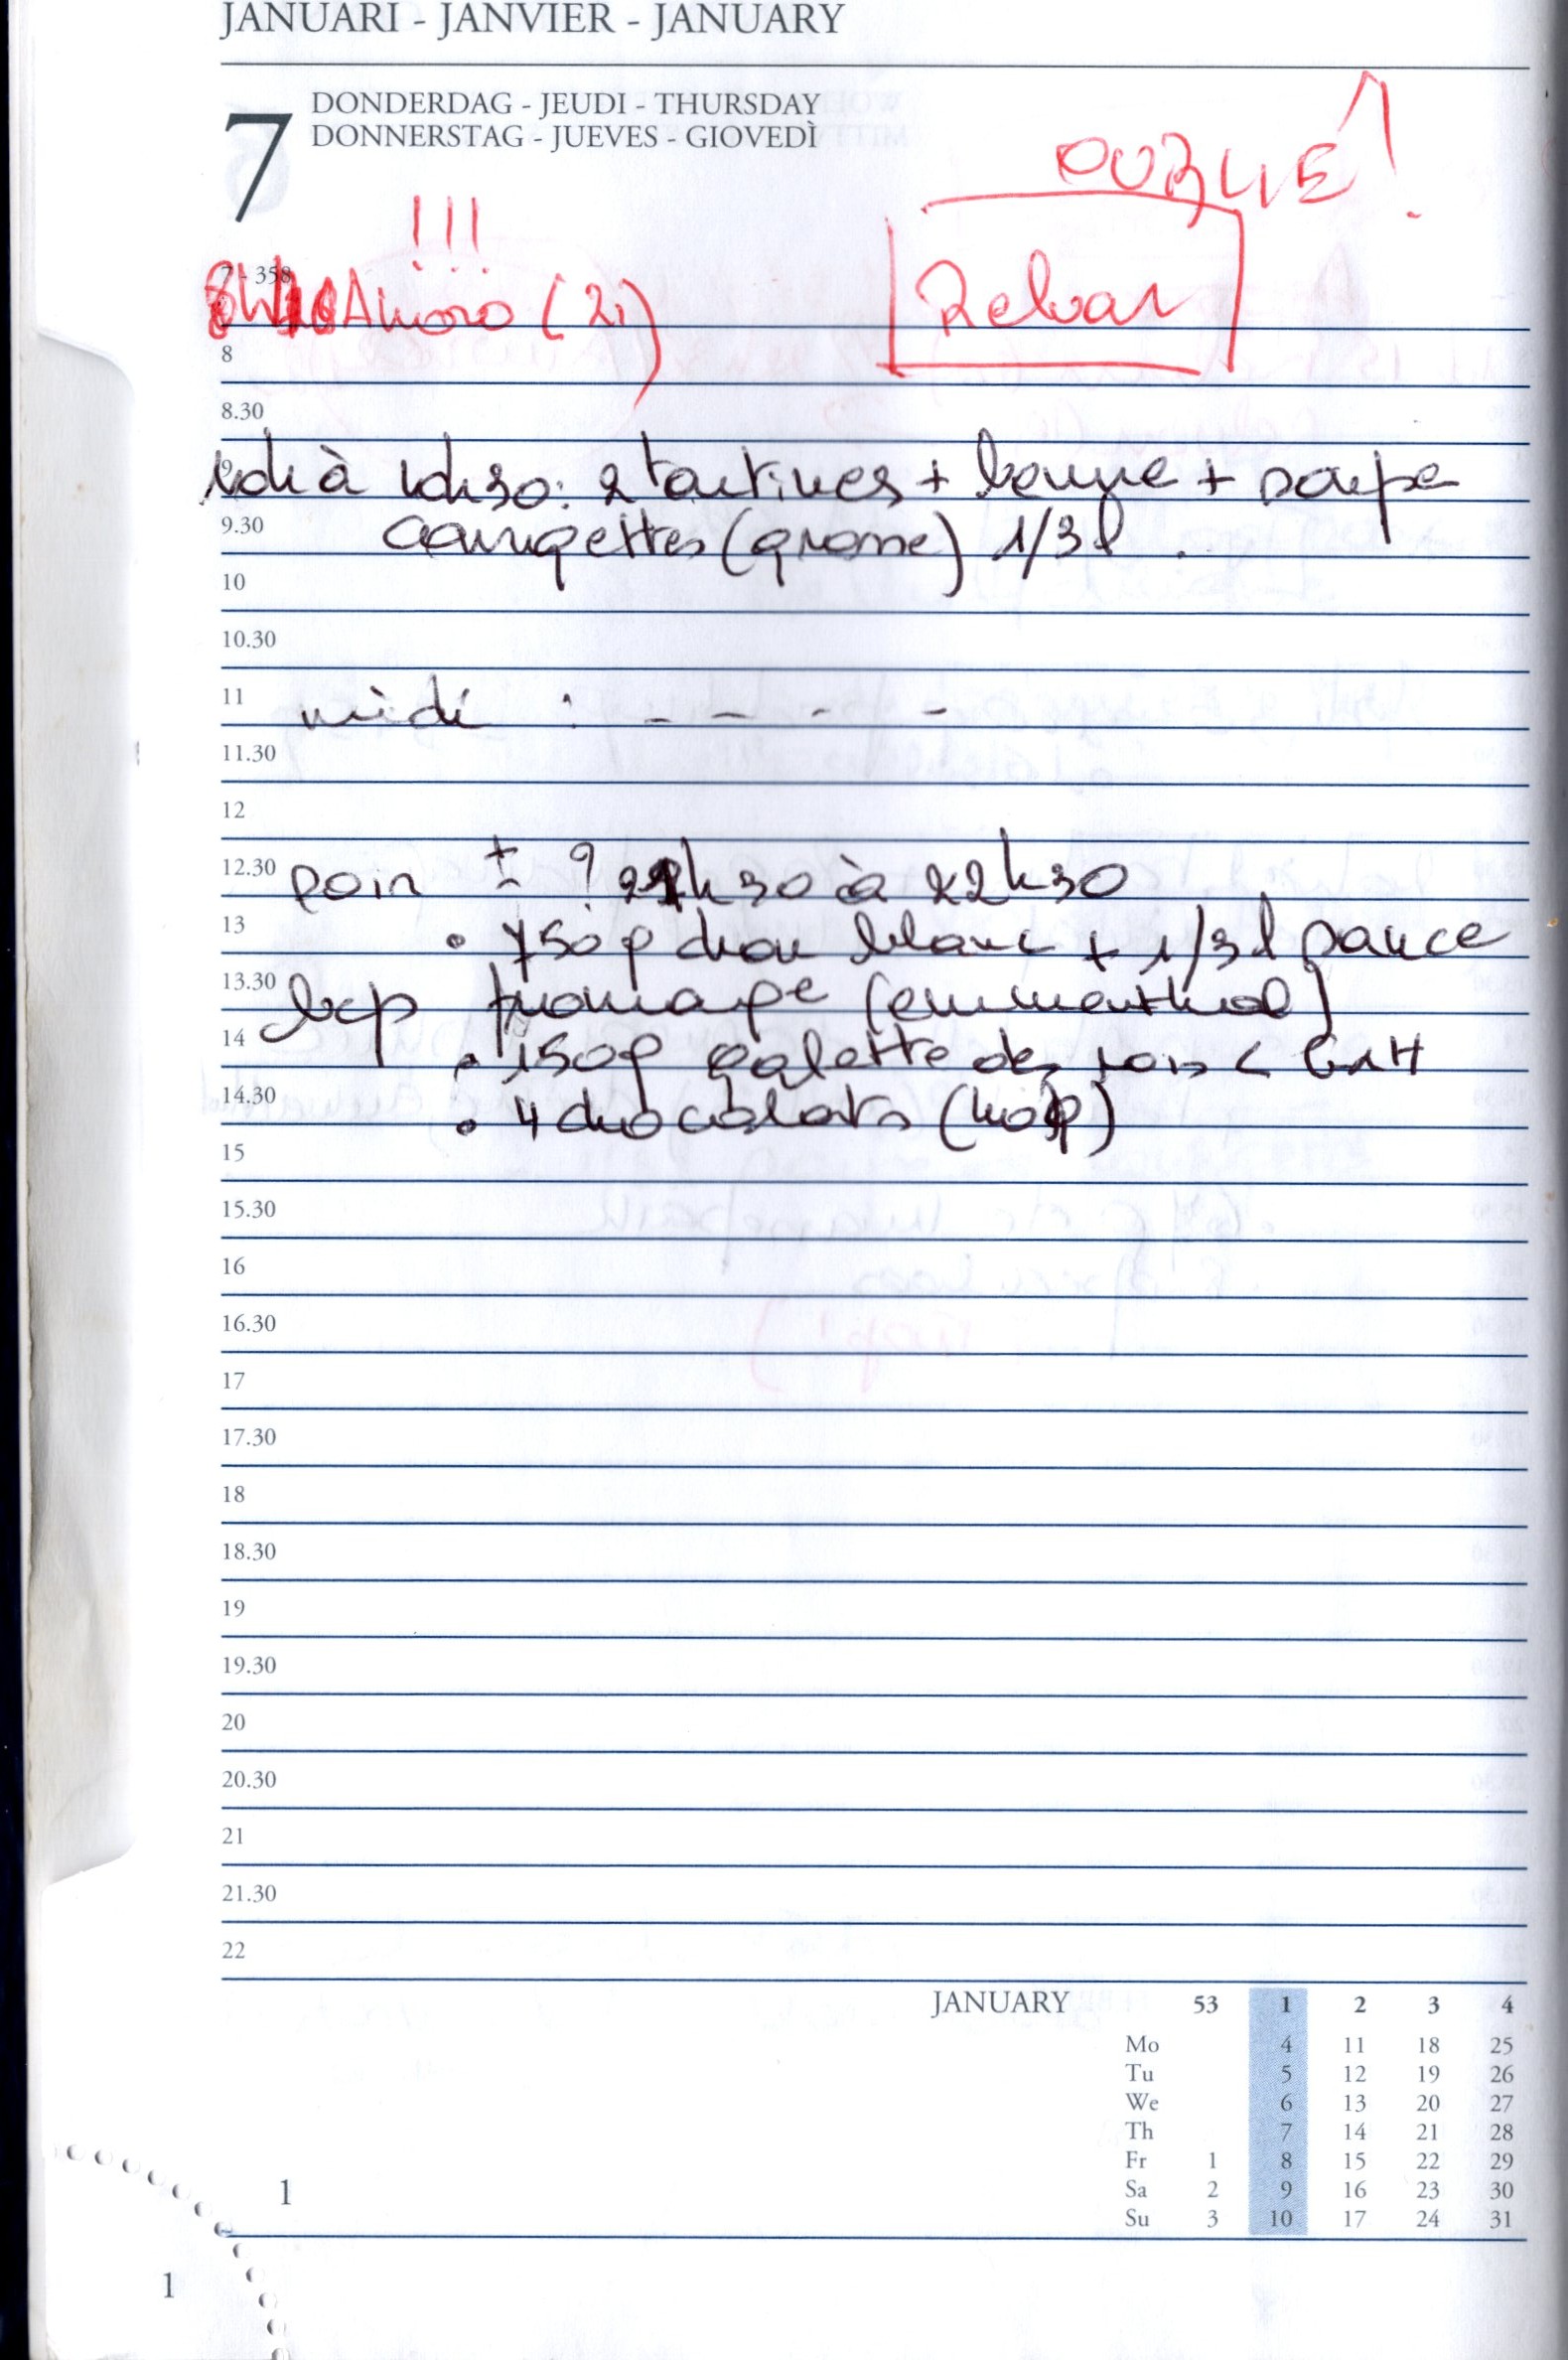 JANUARI - JANVIER - JANUARY
7
DONDERDAG - JEUDI - THURSDAY
DONNERSTAG - JUEVES - GIOVEDÌ
OUBLIE!
!!!
7 - 358
(2i)
8
8.30
9
10h à 10h30: 2 tartines + beurre + soupe
9.30
courgettes (grosse) 1/3 l.
10
10.30
11
midi : - - - -
11.30
12
12.30
soir ± ? 21h30 à 22h30
13
• 750g chou blanc + 1/3 l sauce
13.30
bcp fromage (emmenthal)
14
• 150g galette des rois <
14.30
• 4 chocolats
15
15.30
16
16.30
17
17.30
18
18.30
19
19.30
20
20.30
21
21.30
22
JANUARY 53 1 2 3 4
Mo 4 11 18 25
Tu 5 12 19 26
We 6 13 20 27
Th 7 14 21 28
Fr 1 8 15 22 29
Sa 2 9 16 23 30
Su 3 10 17 24 31
1
1